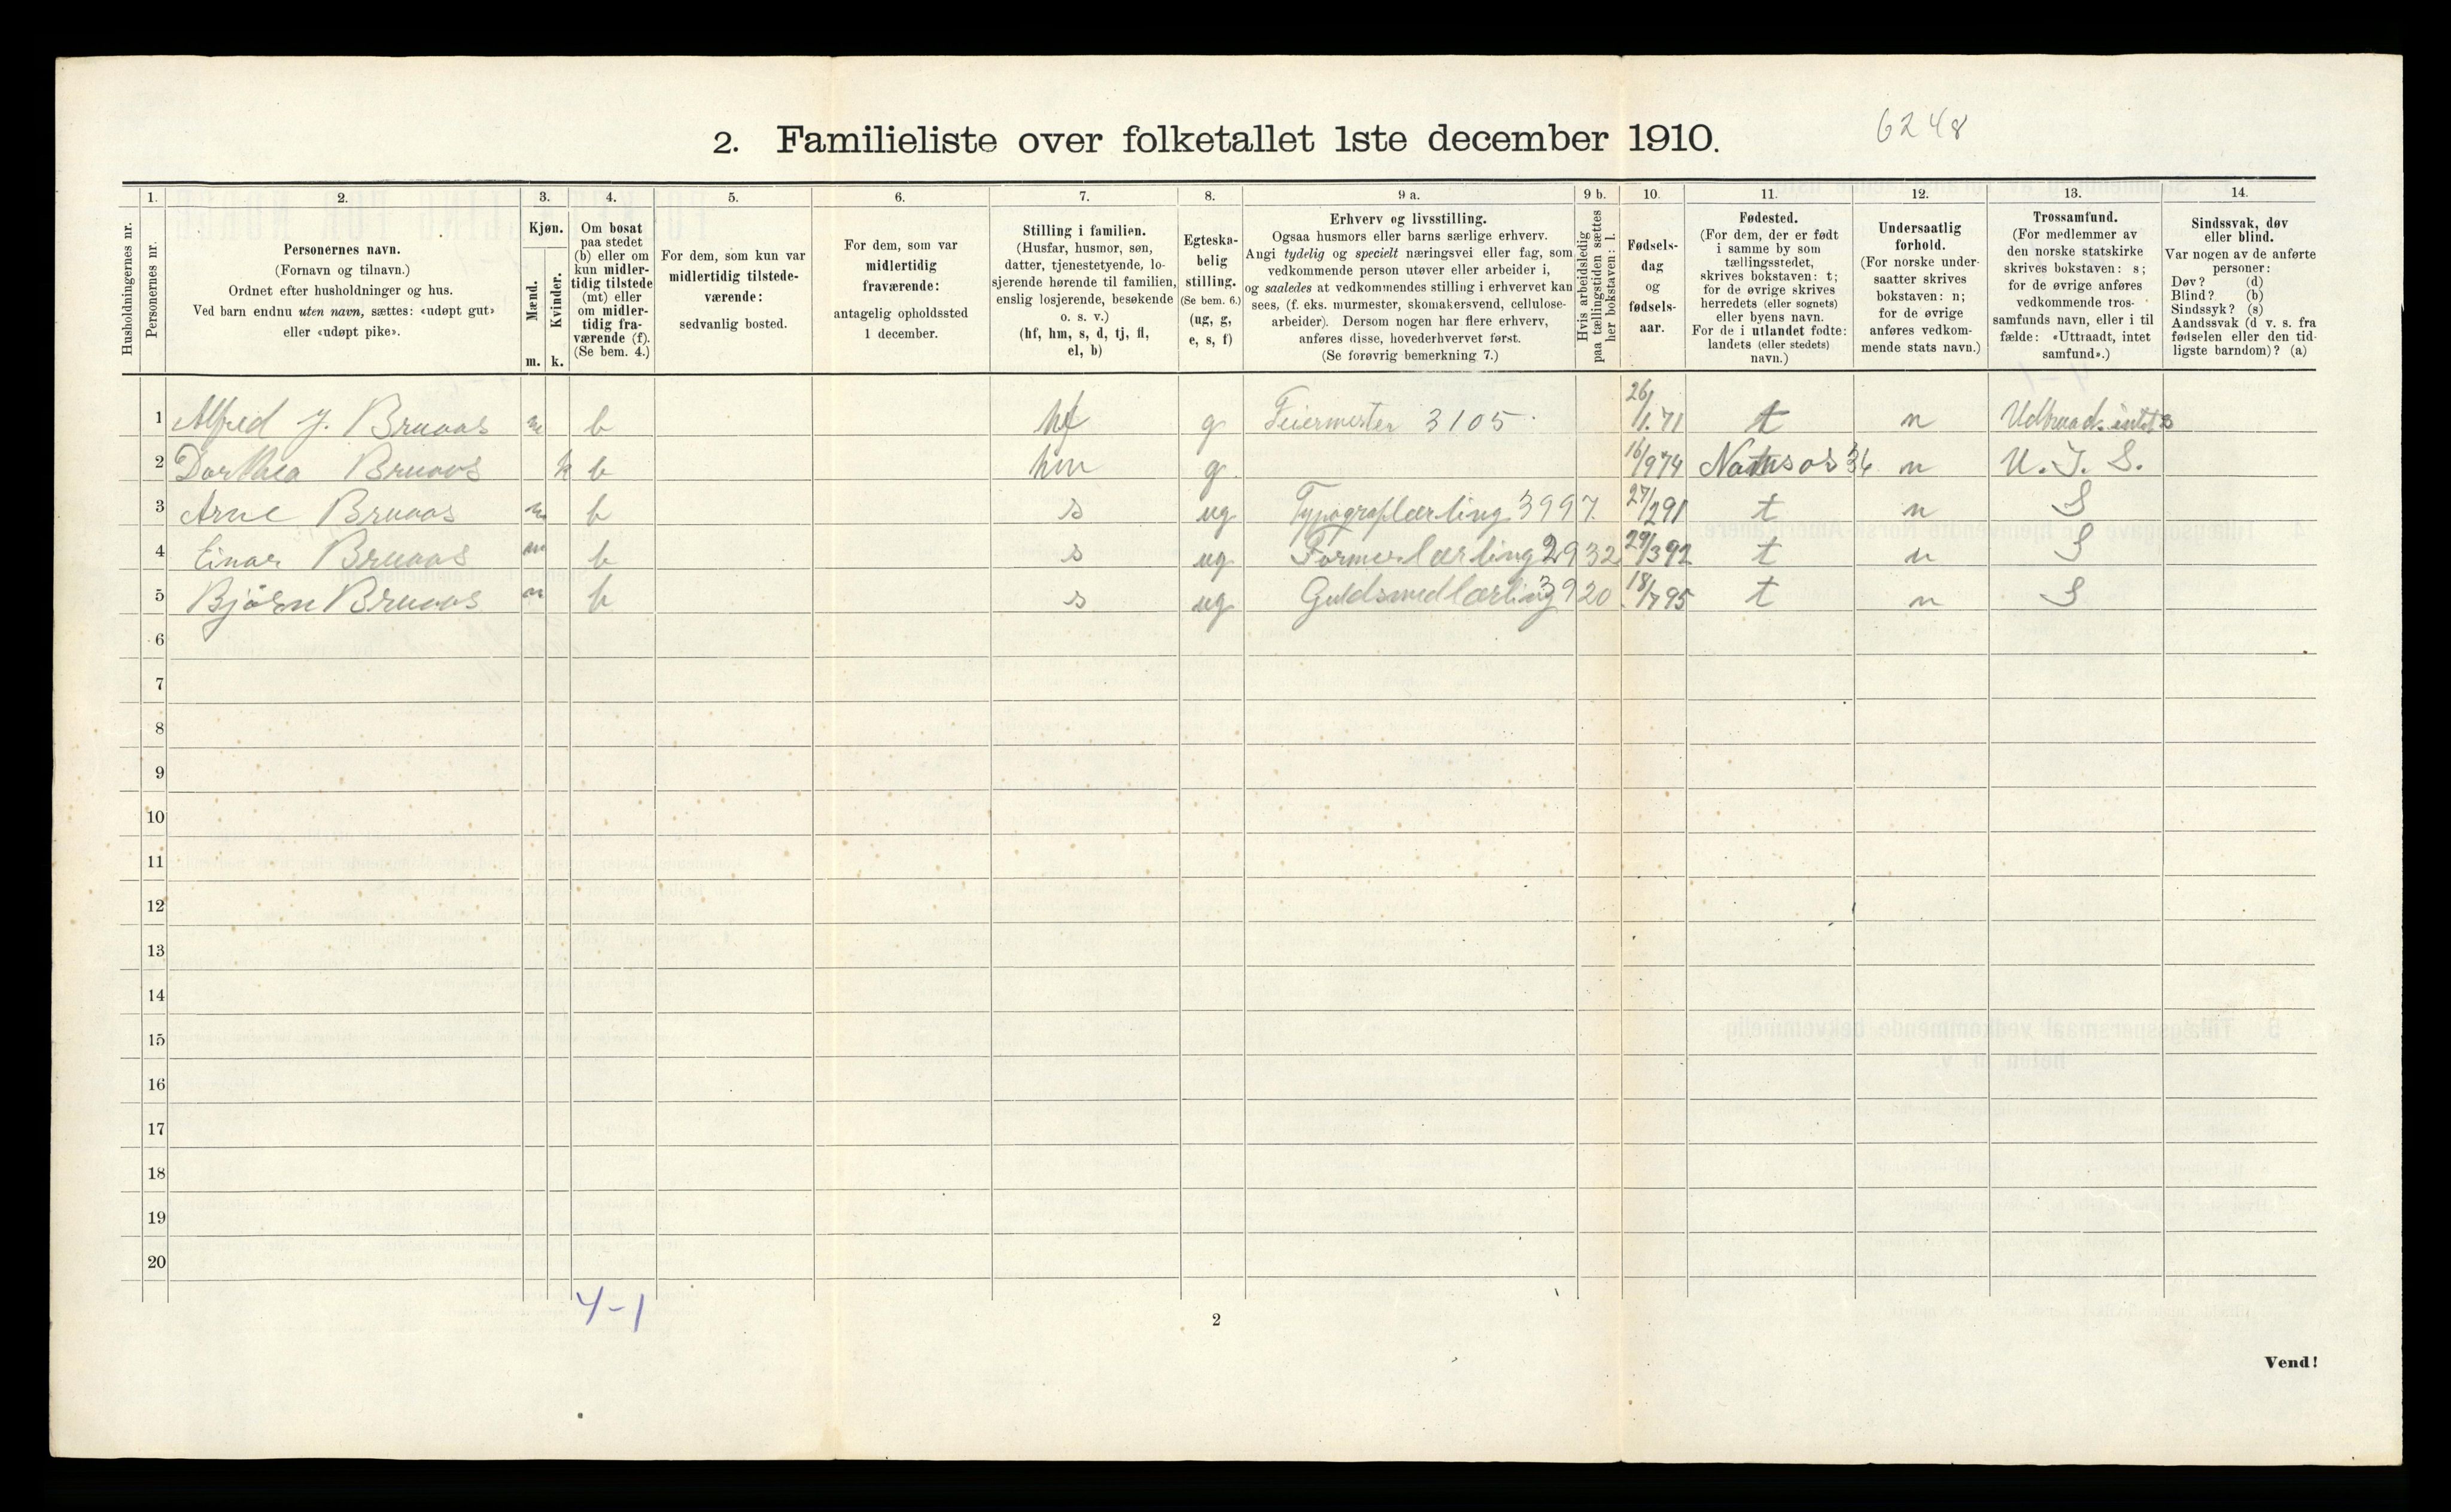 2. Familieliste over folketallet 1ste december 1910.
6248
Husholdningernes nr.
1.
Personernes nr.
2.
Personernes navn.
(Fornavn og tilnavn.)
Ordnet efter husholdninger og hus.
Ved barn endnu uten navn, sættes: «udøpt gut»
eller «udøpt pike».
3.
Kjøn.
Mænd.
Kvinder.
m. k.
4.
Om bosat
paa stedet
(b) eller om
kun midler-
tidig tilstede
(mt) eller
om midler-
tidig fra-
værende (f).
(Se bem. 4.)
5.
For dem, som kun var
midlertidig tilstede-
værende:
sedvanlig bosted.
6.
For dem, som var
midlertidig
fraværende:
antagelig opholdssted
1 december.
7.
Stilling i familien.
(Husfar, husmor, søn,
datter, tjenestetyende, lo-
sjerende hørende til familien,
enslig losjerende, besøkende
o. s. v.)
(hf, hm, s, d, tj, fl,
el, b)
8.
Egteska-
belig
stilling.
(Se bem. 6.)
(ug, g,
e, s, f)
9 a.
Erhverv og livsstilling.
Ogsaa husmors eller barns særlige erhverv.
Angi tydelig og specielt næringsvei eller fag, som
vedkommende person utøver eller arbeider i,
og saaledes at vedkommendes stilling i erhvervet kan
sees, (f. eks. murmester, skomakersvend, cellulose-
arbeider). Dersom nogen har flere erhverv,
anføres disse, hovederhvervet først.
(Se forøvrig bemerkning 7.)
9 b.
Hvis arbeidsledig
paa tællingstiden sættes
her bokstaven: l.
10.
Fødsels-
dag
og
fødsels-
aar.
11.
Fødested.
(For dem, der er født
i samme by som
tællingsstedet,
skrives bokstaven: t;
for de øvrige skrives
herredets (eller sognets)
eller byens navn.
For de i utlandet fødte:
landets (eller stedets)
navn.)
12.
Undersaatlig
forhold.
(For norske under-
saatter skrives
bokstaven: n;
for de øvrige
anføres vedkom-
mende stats navn.)
13.
Trossamfund.
(For medlemmer av
den norske statskirke
skrives bokstaven: s;
for de øvrige anføres
vedkommende tros-
samfunds navn, eller i til
fælde: «Uttraadt, intet
samfund».)
14.
Sindssvak, døv
eller blind.
Var nogen av de anførte
personer:
Døv? (d)
Blind? (b)
Sindssyk? (s)
Aandssvak (d v. s. fra
fødselen eller den tid-
ligste barndom)? (a)
1 Alfred J. Bruaas m b hf g Feiermester 3105 26/1.71 t n Udtraadt intet S
2 Dorthea Bruaas k b hm g 16/9 74 Namsos 34 n U. I. S.
3 Arne Bruaas m b s ug Typograflærling 3997. 27/2 91 t n S
4 Einar Bruaas m b s ug Formerlærling 2932 29/3 92 t n S
5 Bjørn Bruaas m b s ug Guldsmedlærling 3920 18/7 95 t n S
6
7
8
9
10
11
12
13
14
15
16
17
18
19
20
4-1
2
Vend!